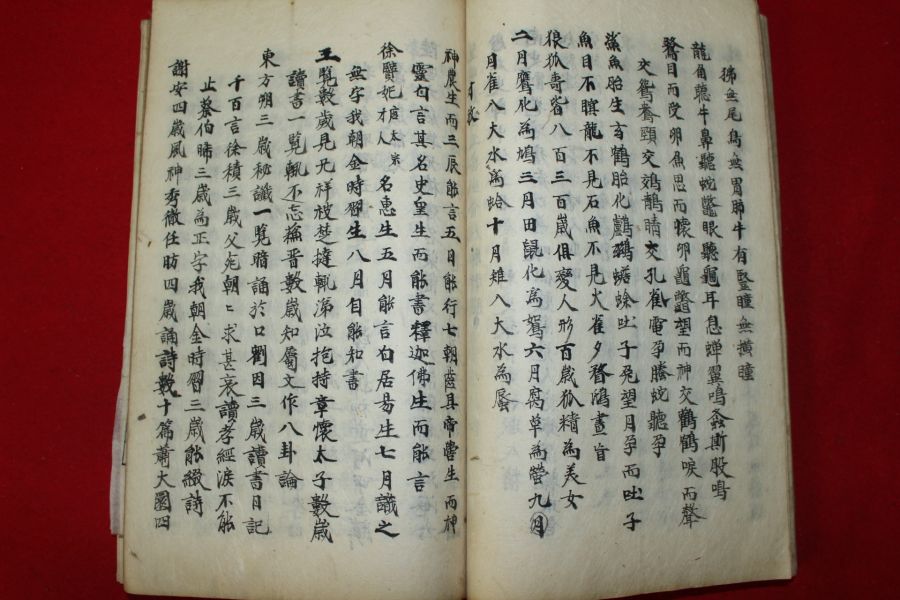 狒無尾鳥無胃肺牛有竪瞳無橫瞳
龍角聽牛鼻聽蛇鼈眼聽龜耳息蟬翼鳴螽斯股鳴
鶩目而受卵魚思而懷卵龜鼈望而神交鶴鶴唳而聲
交鴛鴦頸交鵁鶄睛交孔雀電孕騰蛇聽孕
鯊魚胎生玄鶴胎化鸕鷀 蟾蜍吐子兔望月孕而吐子
魚目不瞑龍不見石魚不見火雀夕瞀鴟晝盲
狼狐壽皆八百三百歲俱變人形百歲狐精爲美女
二月鷹化爲鳩三月田鼠化爲鴽六月腐草爲螢九月
月雀入大水爲蛤十月雉入大水爲蜃
神農生而三辰能言五日能行七朝齒具帝嚳生而神
靈自言其名史皇生而能書釋迦佛生而能言
徐賢妃唐太宗才人名惠生五月能言白居易生七月識之
無字我朝金時習生八月自能知書
王覽數歲見兄祥被楚撻輒涕泣抱持章懷太子數歲
讀書一覽輒不忘楊晋數歲知屬文作八卦論
東方朔三歲秘讖一覽暗誦於口劉因三歲讀書日記
千百言徐積三歲父死朝〻求甚哀讀孝經淚不能
止蔡伯晞三歲爲正字我朝金時習三歲能綴詩
謝安四歲風神秀徹任昉四歲誦詩數十篇蕭大圜四